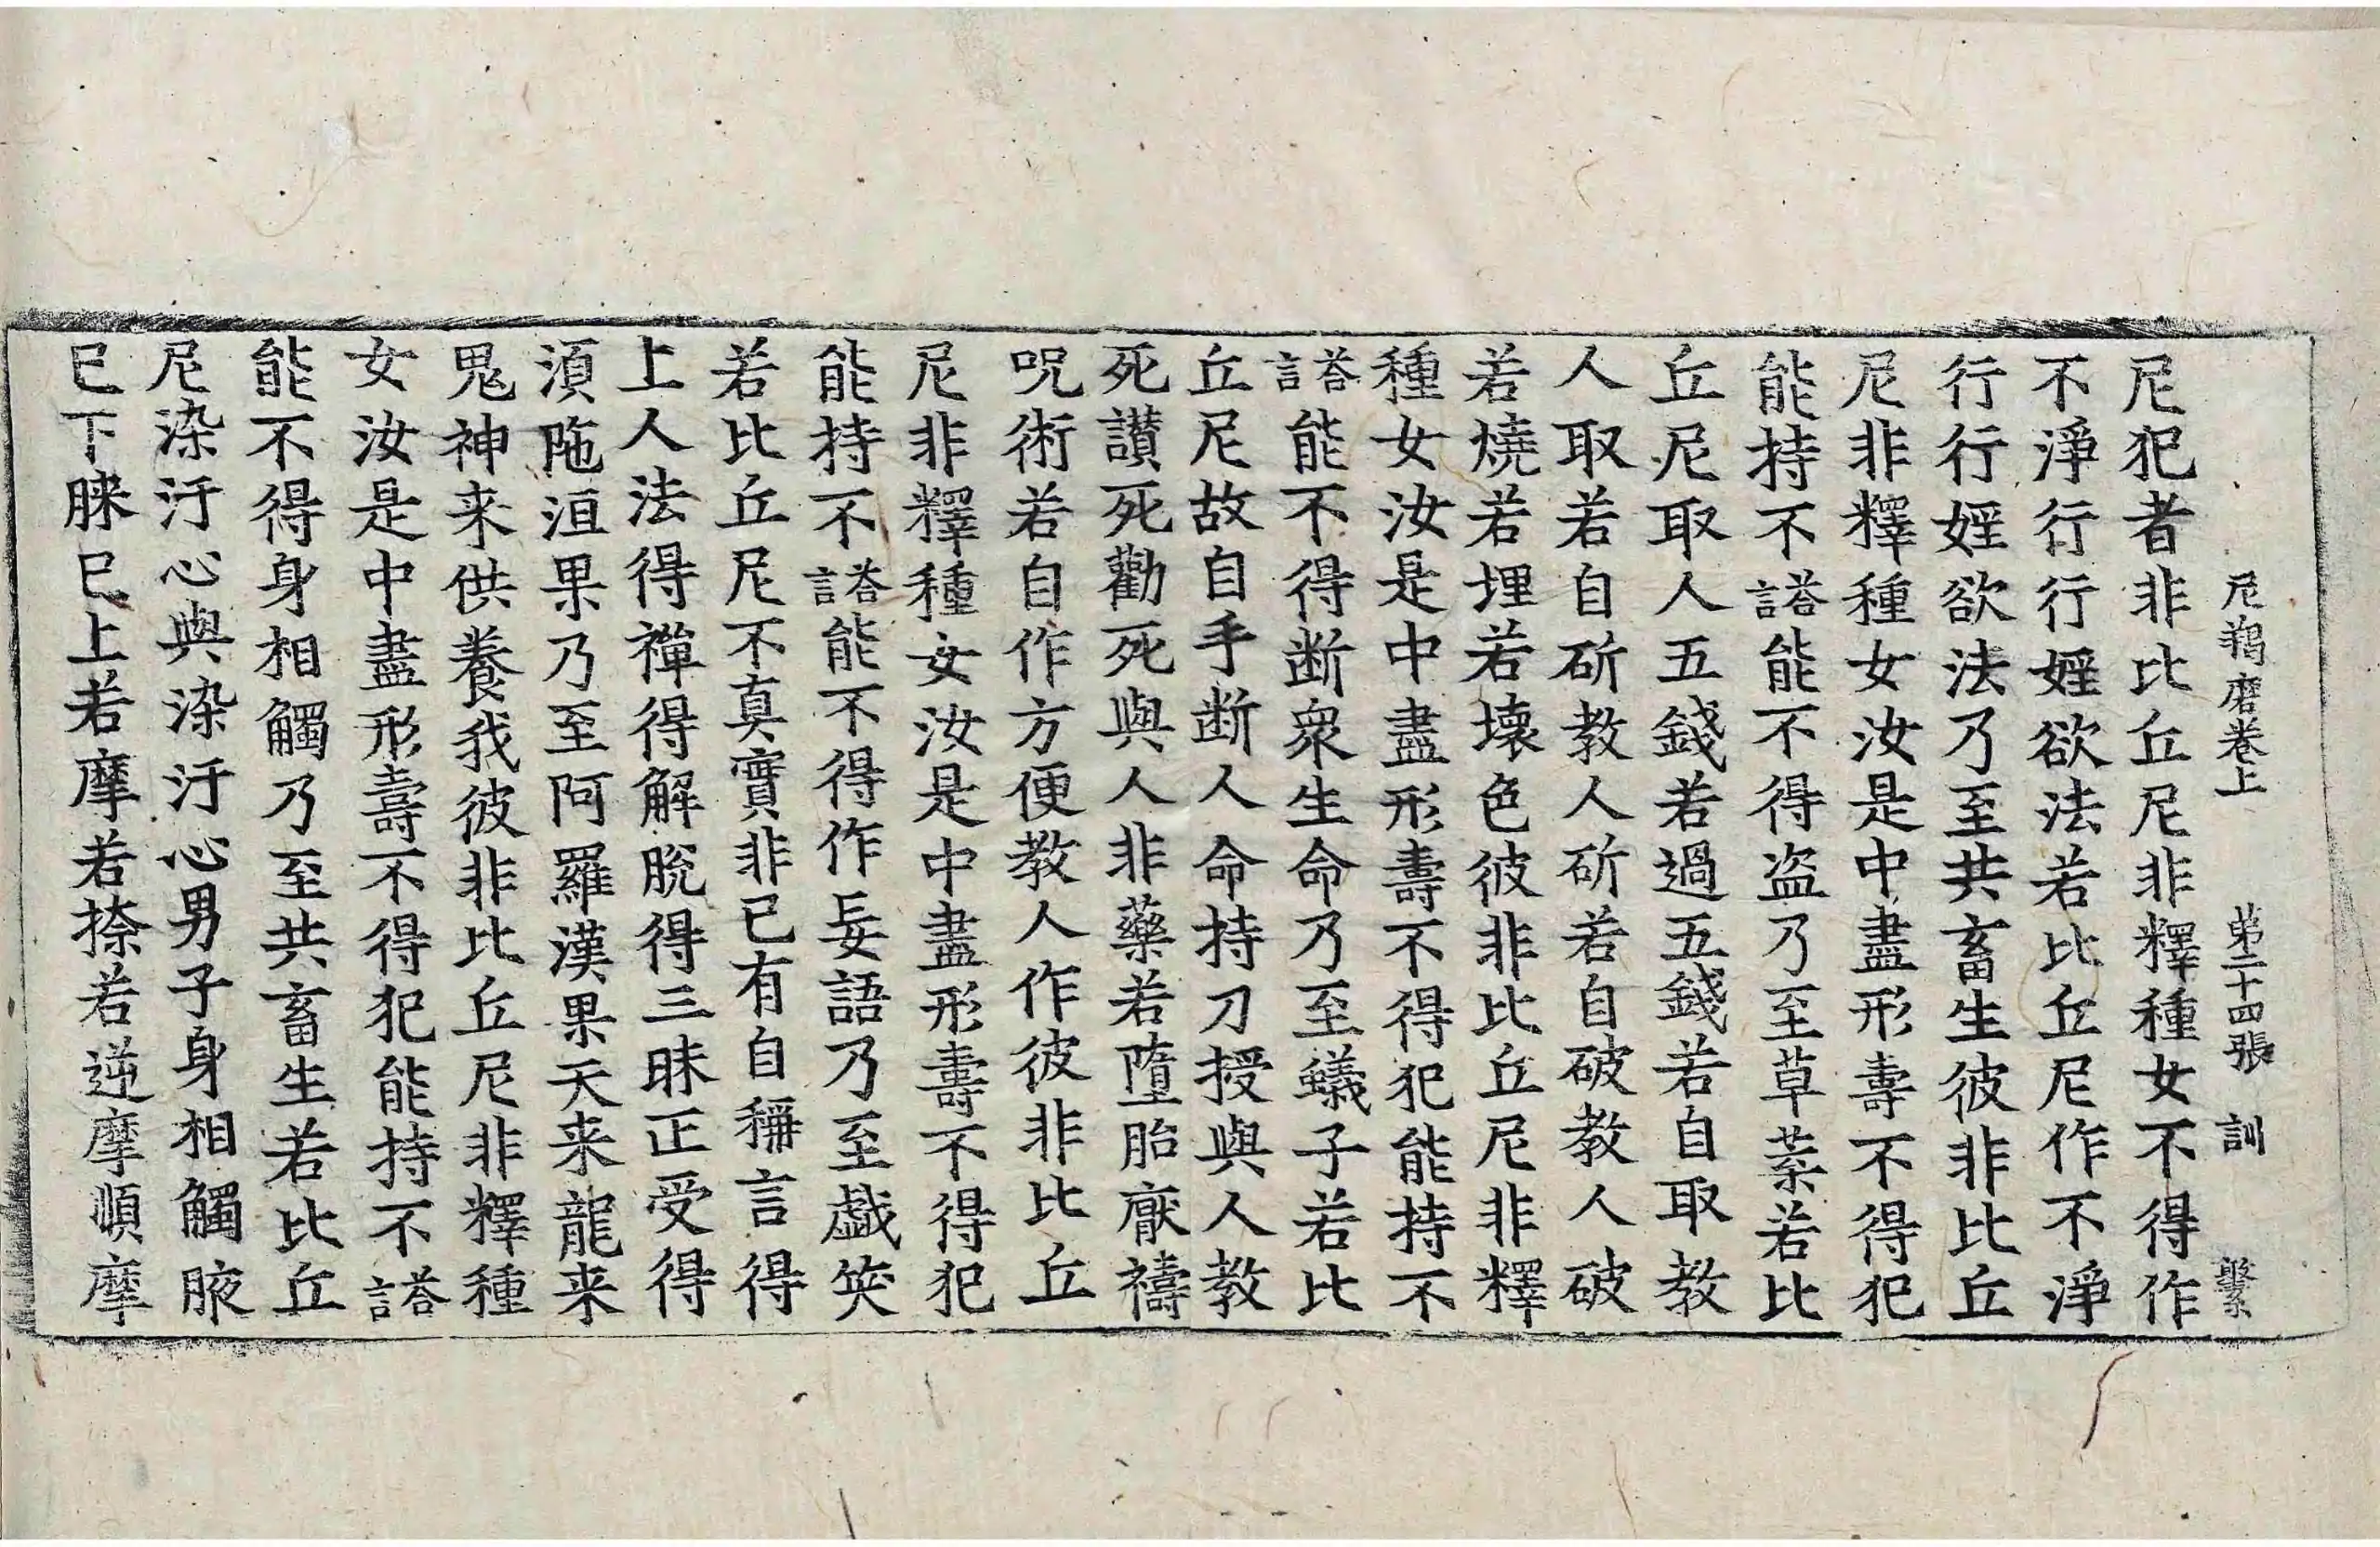 尼羯磨卷上 第二十四張 訓 繫
尼犯者非比丘尼非釋種女不得作
不淨行行婬欲法若比丘尼作不淨
行行婬欲法乃至共畜生彼非比丘
尼非釋種女汝是中盡形壽不得犯
能持不荅言能不得盜乃至草菜若比
丘尼取人五錢若過五錢若自取教
人取若自斫教人斫若自破教人破
若燒若埋若壞色彼非比丘尼非釋
種女汝是中盡形壽不得犯能持不
荅言能不得断衆生命乃至蟻子若比
丘尼故自手断人命持刀授與人教
死讃死勸死與人非藥若墮胎厭禱
呪術若自作方便教人作彼非比丘
尼非釋種女汝是中盡形壽不得犯
能持不荅言能不得作妄語乃至戱笑
若比丘尼不真實非已有自稱言得
上人法得禪得解脫得三昧正受得
湏陁洹果乃至阿羅漢果天来龍来
鬼神来供養我彼非比丘尼非釋種
女汝是中盡形壽不得犯能持不荅言
能不得身相觸乃至共畜生若比丘
尼染汙心與染汙心男子身相觸腋
已下𦝫已上若摩若捺若逆摩順摩